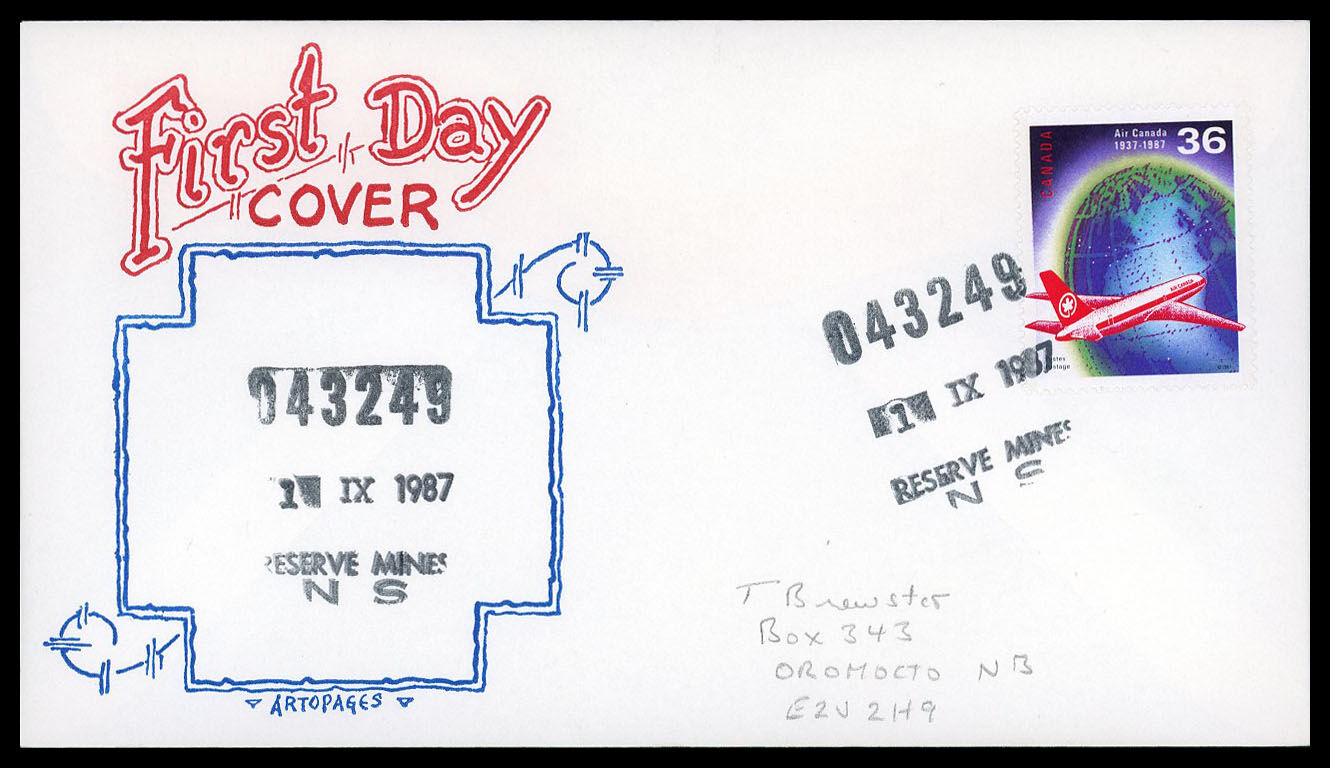 First Day
COVER
043249
1 IX 1987
RESERVE MINES
N S
ARTOPAGES
CANADA
Air Canada
1937-1987
36
AIR CANADA
043249
1 IX 1987
RESERVE MINES
N S
T Brewster
Box 343
OROMOCTO NB
E2V 2H9